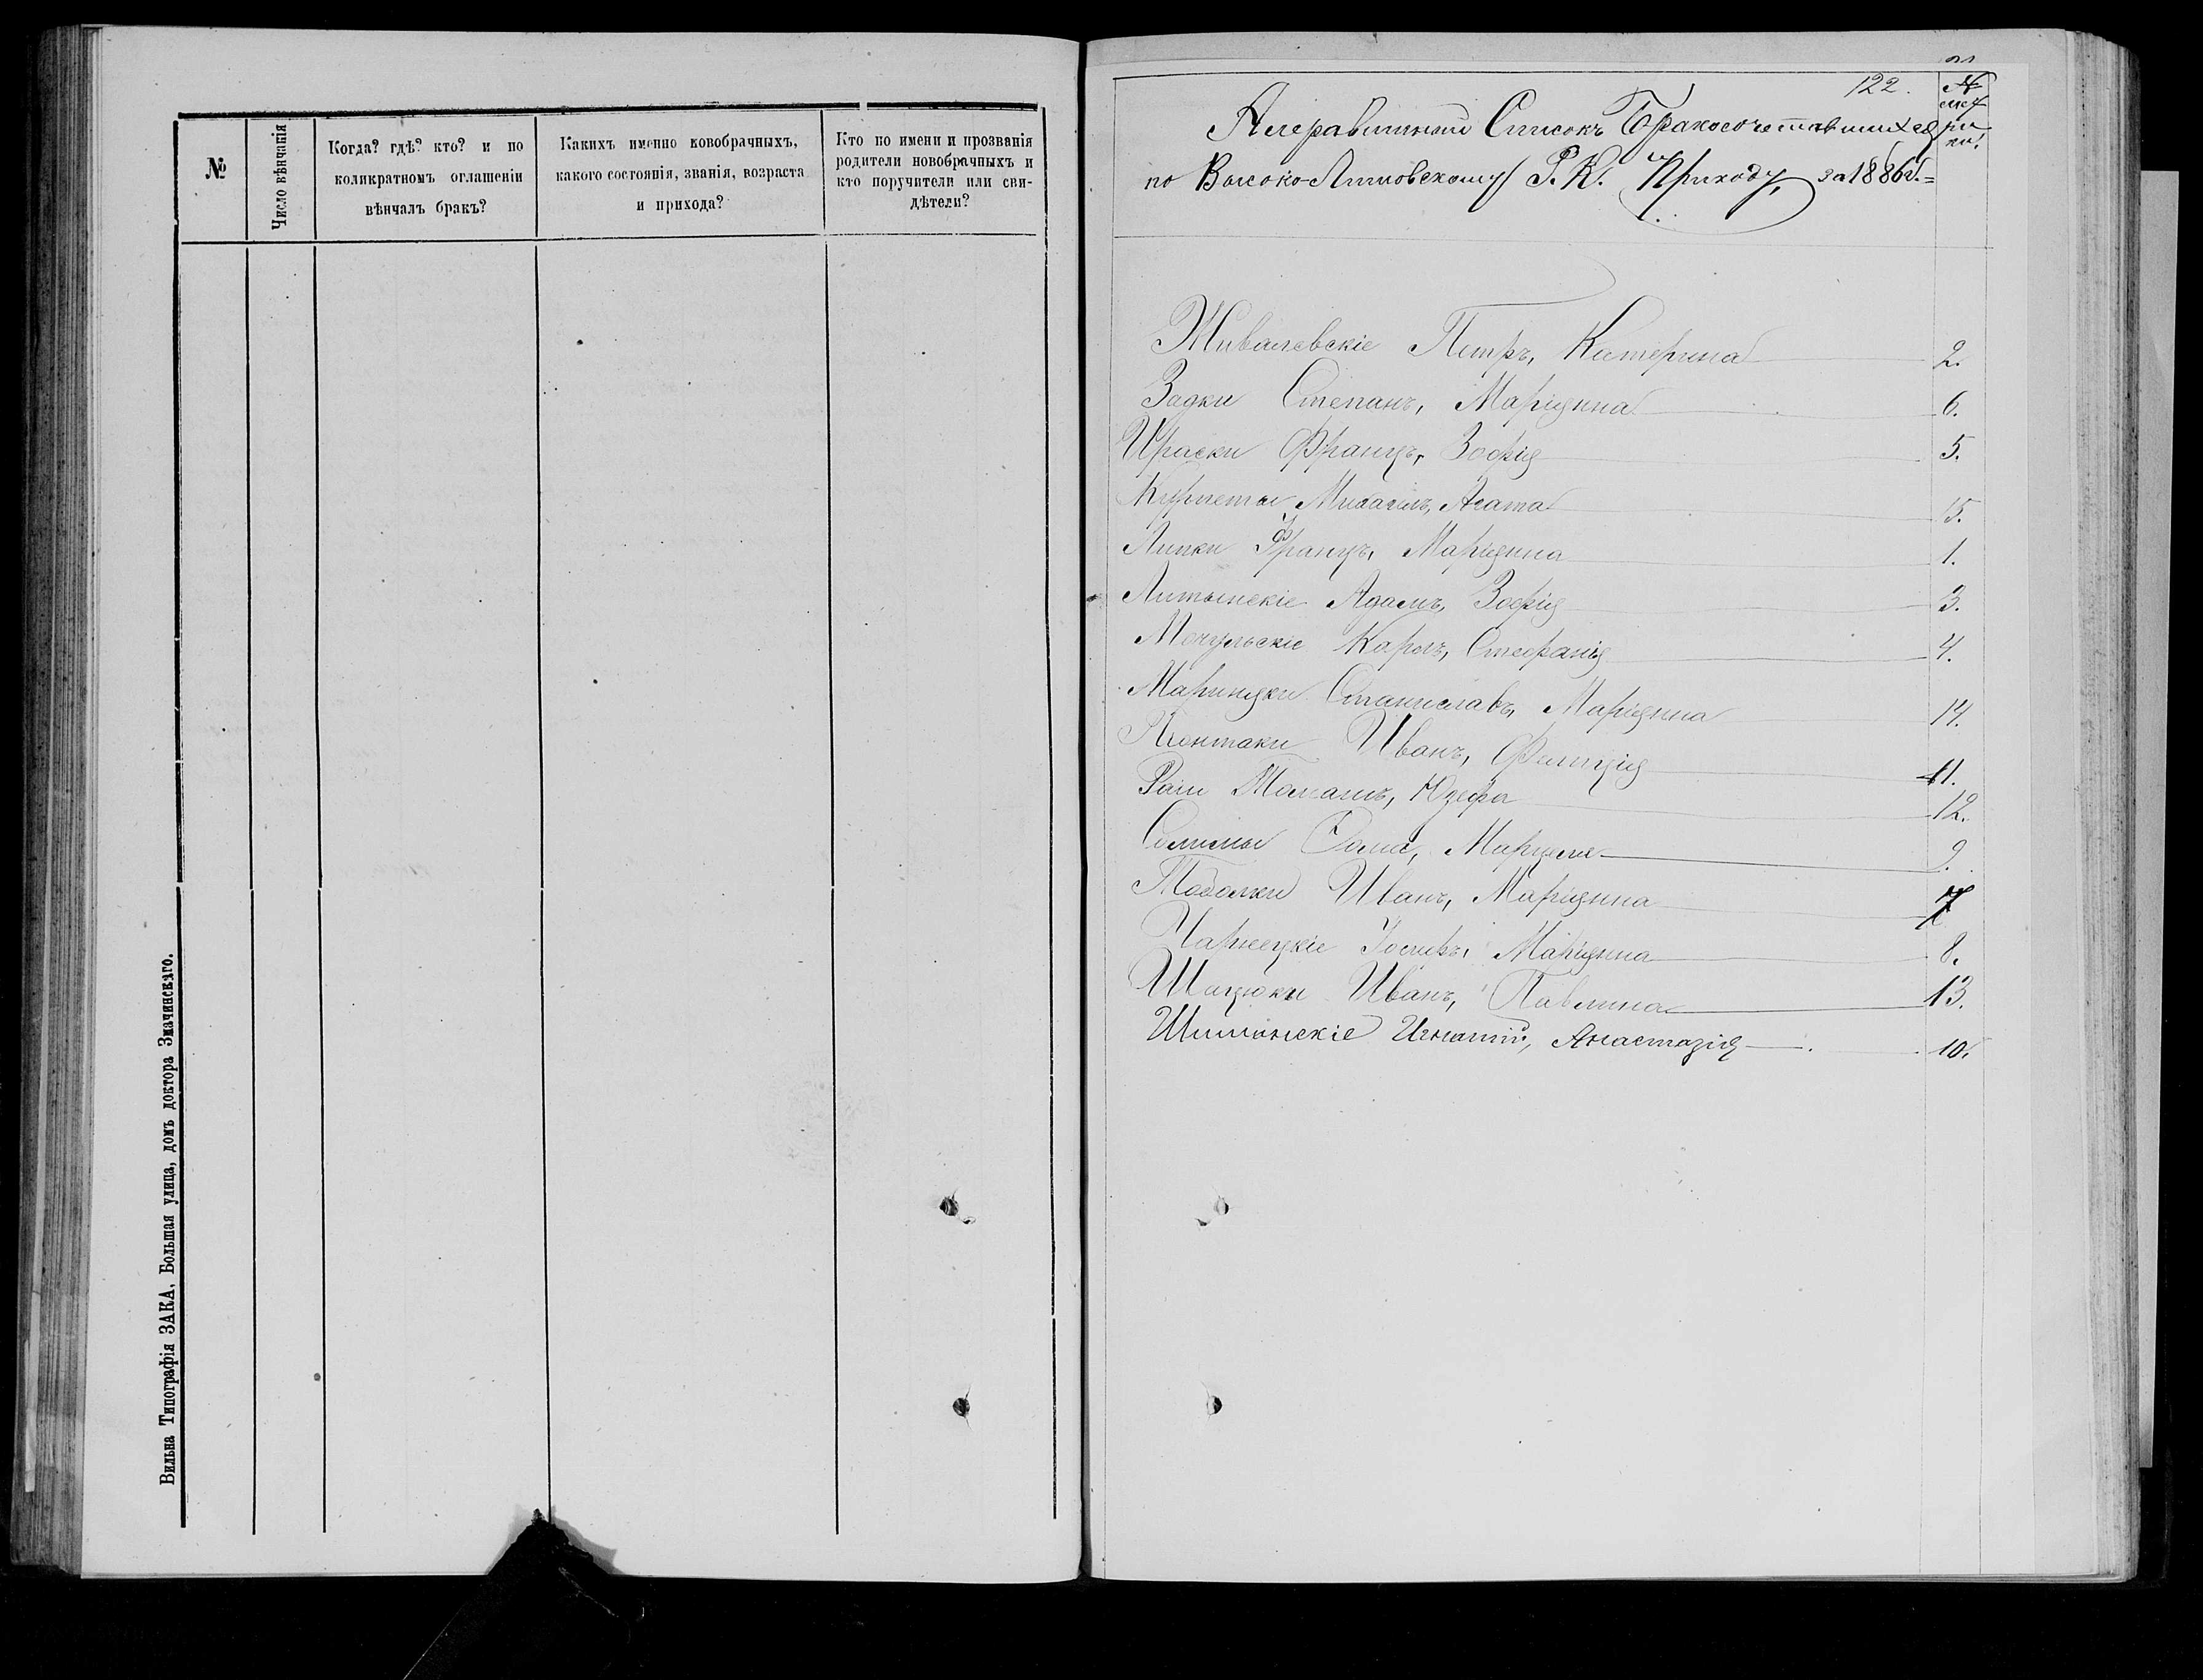 №
Число вѣнчанія
Когда? гдѣ? кто? и по
коликратномъ оглашеніи
вѣнчалъ бракъ?
Какихъ именно новобрачныхъ,
какого состоянія, званія, возраста
и прихода?
Кто по имени и прозванія
родители новобрачныхъ и
кто поручители или сви-
дѣтели?
Вильна Типографія ЗАКА, Большая улица, домъ доктора Змачинскаго.
122.
№
метри
ки.
Алфавитный Списокъ Бракосочетавшихся
по Высоко-Литовскому Р. К. Приходу, за 1886 г.
Живалевскіе Петръ, Катерина 2.
Задки Степанъ, Маріянна 6.
Ираски Францъ, Зофія 5.
Курпеты Михаилъ, Агата 15.
Липки Францъ, Маріянна 1.
Литынскіе Адамъ, Зофія 3.
Мочульскіе Карлъ, Стефанія 4.
Мариняки Станиславъ, Маріянна 14.
Піонтаки Иванъ, Фелиція 11.
Раіи Томашъ, Юзефа 12.
Сомины Фома, 9.
Тоболки Иванъ, Маріянна 7
Чарнецкіе Іосифъ, Маріянна 8.
Шацюки Иванъ, Павлина 13.
Шиманскіе Игнатій, Анастазія 10.